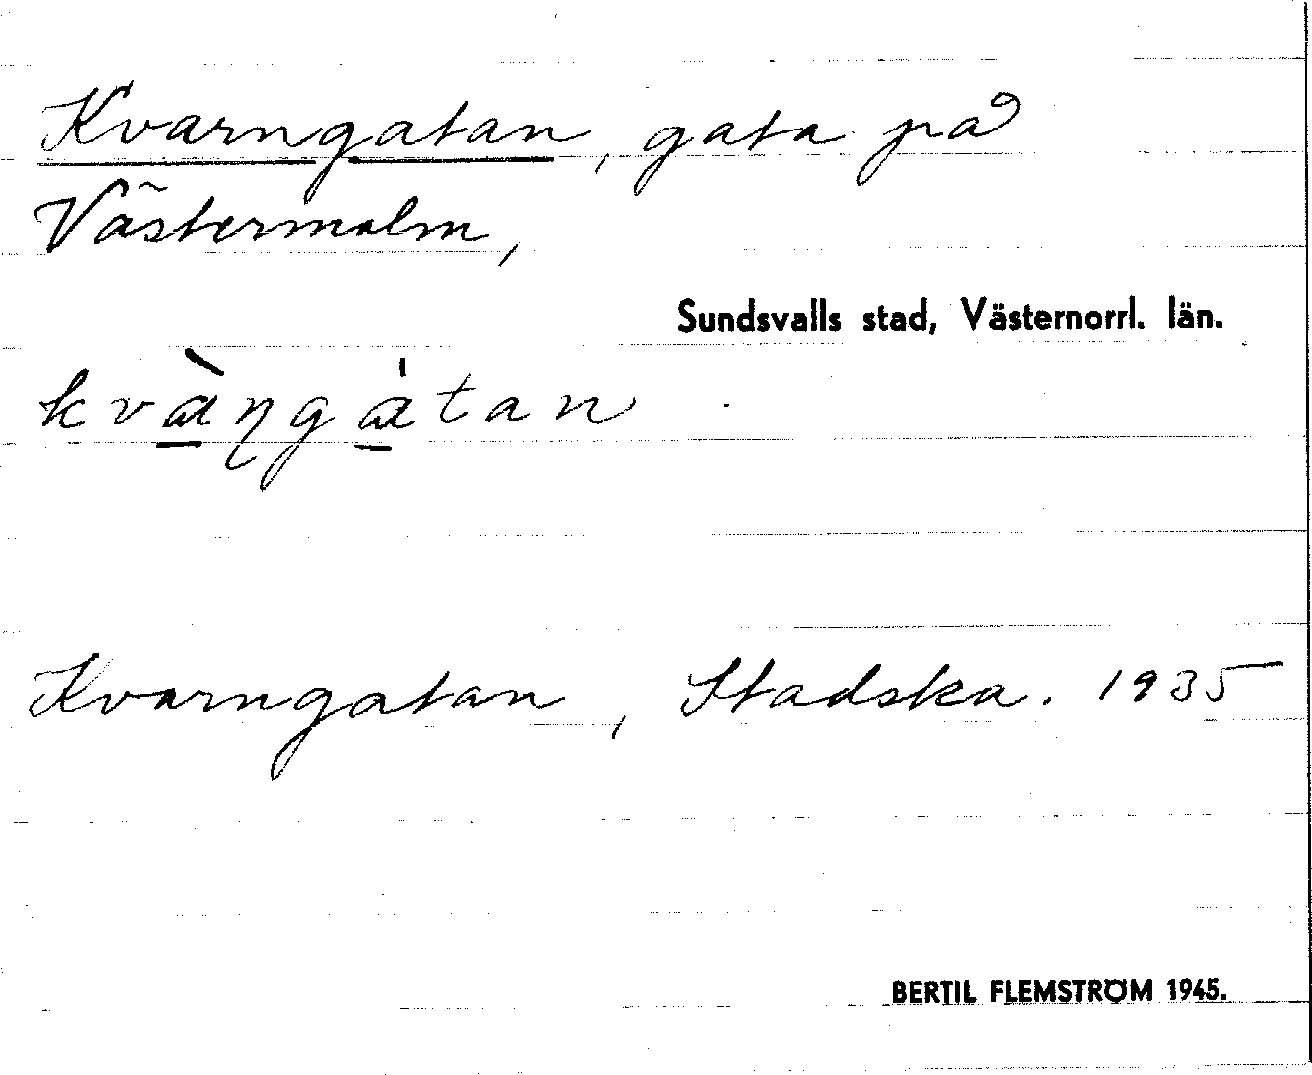 Kvarngatan, gata på
Västermalm,
Sundsvalls stad, Västernorrl. län.
kvɑ̱̀ŋgɑ̱́tan
Kvarngatan, Stadska. 1935
BERTIL FLEMSTRÖM 1945.